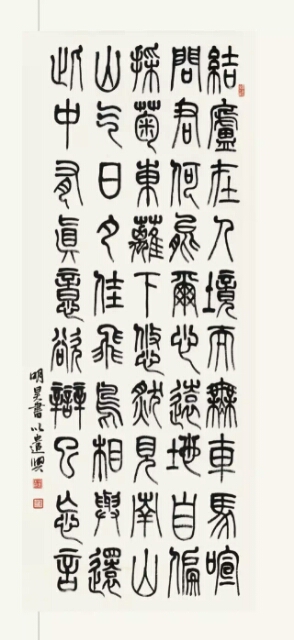 結廬在人境而無車馬喧
問君何能爾心遠地自偏
採菊東籬下悠然見南山
山气日夕佳飛鳥相與還
此中有眞意欲辯已忘言
明昊書以遣興